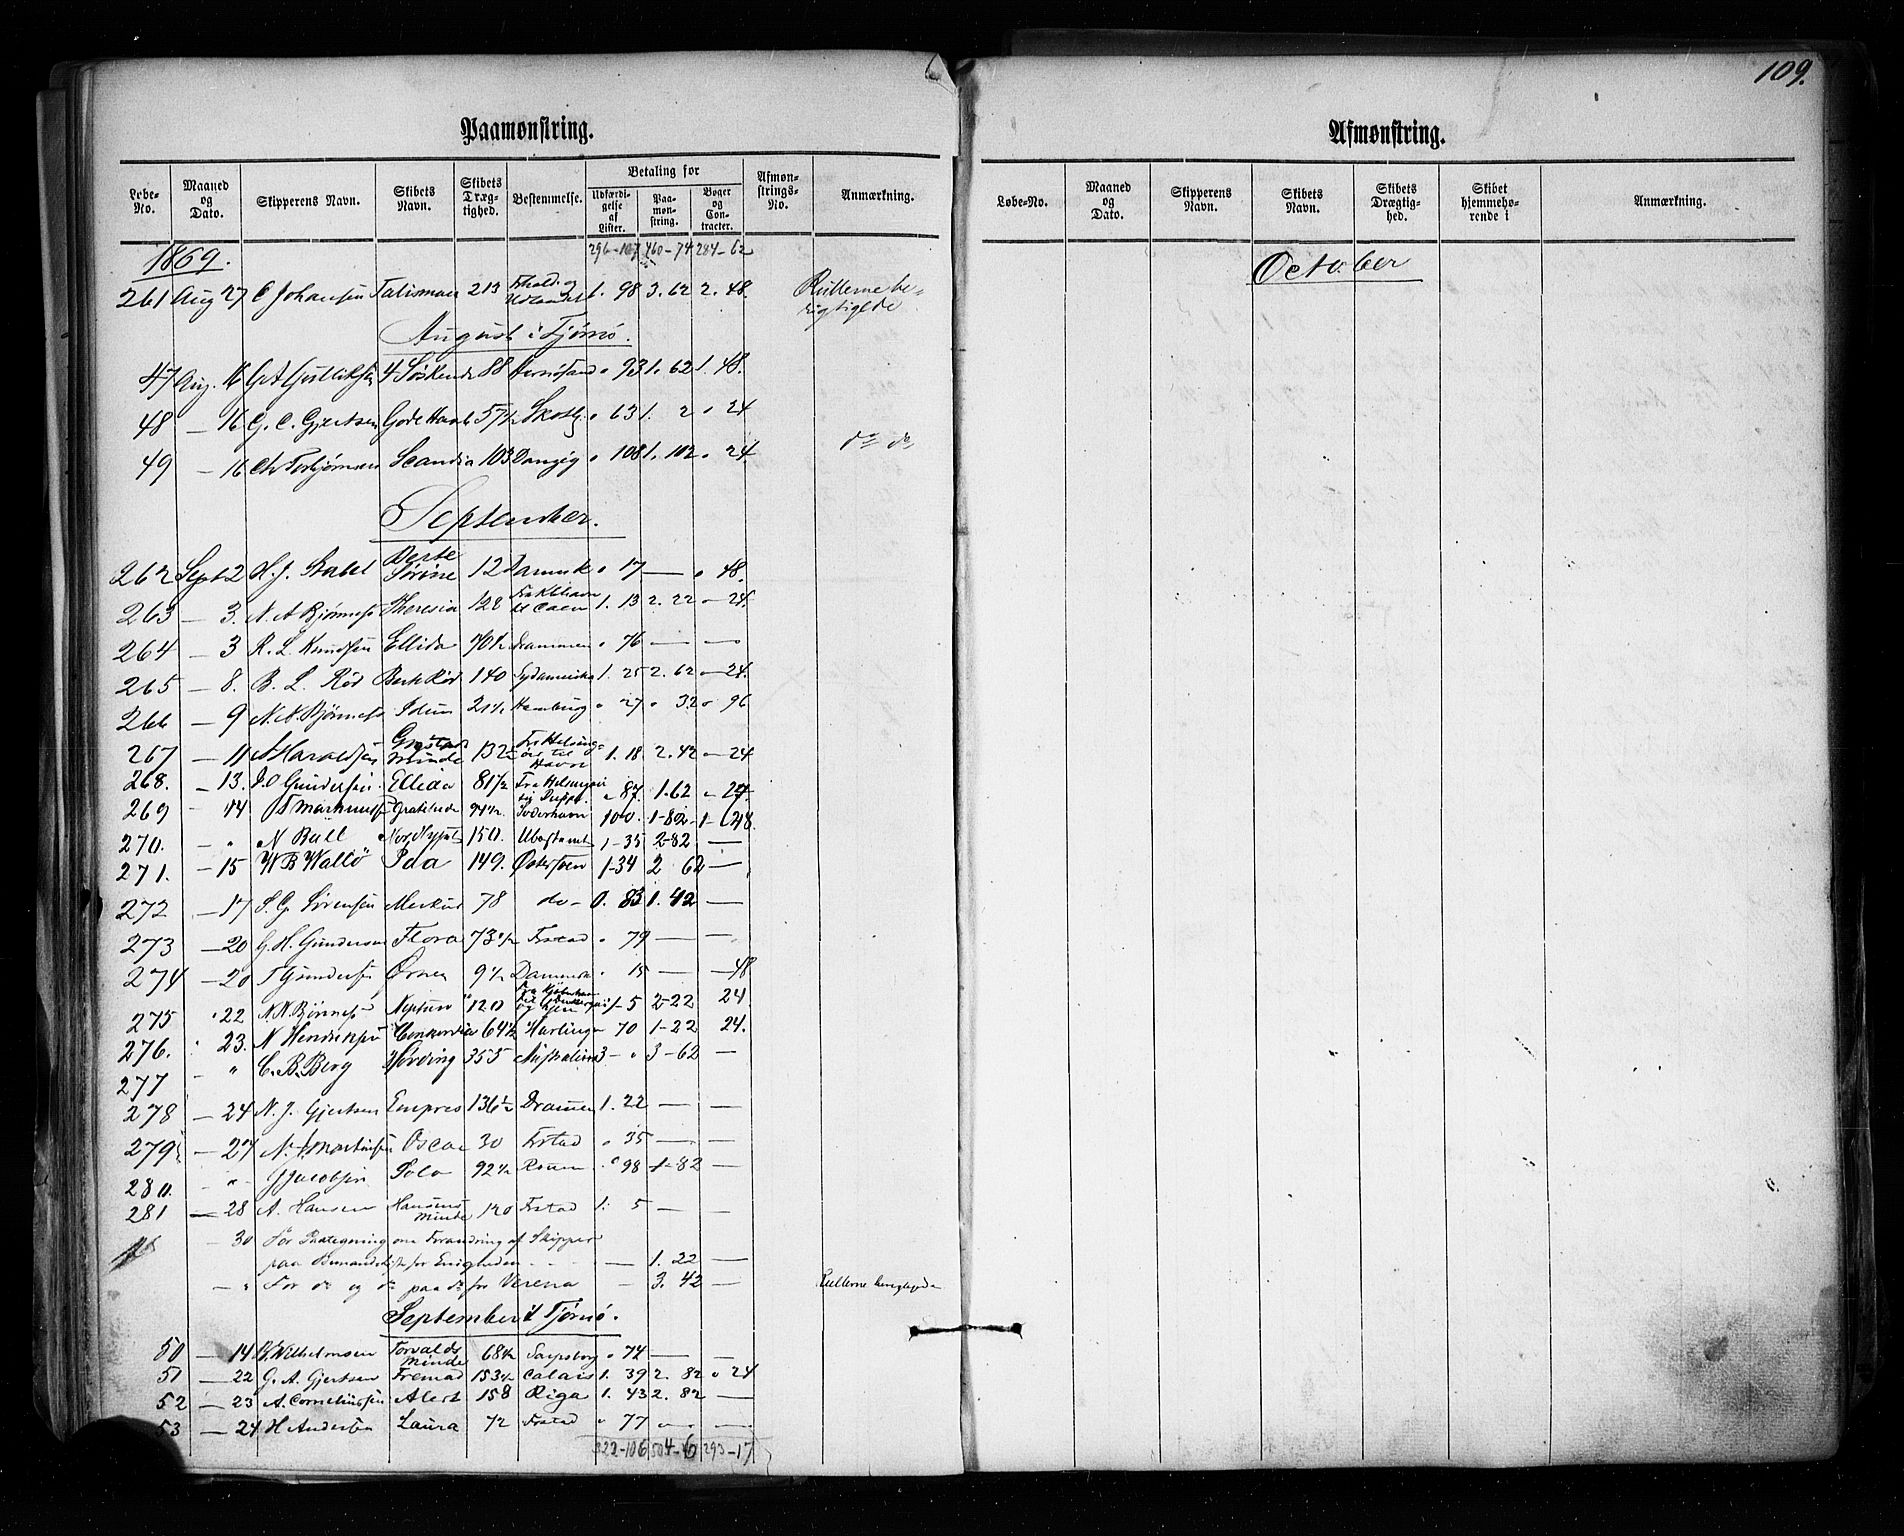 109.
Paamønstring.
Løbe-No. Maaned og Dato. Skipperens Navn. Skibets Navn. Skibets Drægtighed. Bestemmelse. Betaling for Udfærdigelse af Lister. Paamønstring. Bøger og Contracter. Afmønstrings-No. Anmærkning.
1869. 296-107 460-74 284-62
261 Aug 27 C Johansen Talisman 213 Udlandet 1. 98 3. 62 2. 48. Rullerne berigtigede
August i Tjømø.
47 Aug. 16 G A Gulliksen 4 Søskende 88 Hernösand " 93 1. 62 1. 48.
48 — 16 G. C. Gjertsen Gode Haab 57½ Skotl. " 63 1. 2 " 24
49 — 16 Chr Torbjørnsen Scandia 103 Danzig " 108 1. 102 " 24. do do
September.
262 Sept 2 H. J. Stabel Sørine 12 Danmrk " 17 — " 48.
263 — 3. N. A Bjønness Theresia 128 Fra Kbhavn til Caen 1. 13 2. 22 — 24.
264 — 3 R. L. Knudsen Ellida 70½ Drammen " 76 — —
265 — 8. B. L. Rød Berk Rød 140 Sydamerika 1. 25 2. 62 — 24.
266 — 9 N. N. Bjønness Idun 21½ Hamburg " 27 " 32 " 96
267 — 11 A Haraldsen Minde 132½ Fra Helsingør til Havre 1. 18 2. 42 — 24
268. — 13. J. O Gundersen Ellida 81½ Fra Helsingør " 87. 1-62 " 24.
269 — 14 Martinus Gratitude 94½ Søderhavn 100. 1-82 1- 48.
270. — " N Ball 150. Ubestemt 1-35 2-82 —
271. — 15 W B Wallö Ida 149. Østersøen 1-34 2 62 —
272 — 17 S. G. Sørensen Merkur 78 do — 0. 83 1. 42 —
273 — 20 G. H. Gundersen Flora 73½ Frstad " 79 — —
274 — 20 T Gundersen Ørnen 9½ Danmrk " 15 — — 48
275 " 22 N. N. Bjønness Neptun 120 Fra Kjøbenhavn 1-5 2-22 24
276. " 23. N Henriksen Concordia 64½ Harlingen 70 1-22 24.
277 — " C. B. Berg Høvding 355 Australien 3- " 3-62 —
278 — 24 N. J. Gjertsen Empres 136½ Dramen 1. 22 — —
279 — 27 N. Martinsen Oscar 30 Frstad " 35 — —
280. — " J Jacobsen Polo 92½ Rouen " 98 1-82 —
281 — 28 A. Hansen Hansens Minde 120 Frstad 1. 5 — —
— 30 For Paategning om Forandring af Skipper
paa for Enigheden — 1. 22 —
— " For do og do paa do for Verena — 3. 42 — Rullerne berigtigede
September i Tjømø.
50 — 14 Wilhelmsen Torvalds Minde 68½ Sarpsborg " 74 — —
51 — 22 G. A. Gjertsen Fremad 153½ Calais 1. 39 2. 82 " 24
52 — 23 A. Corneliussen Alert 158 Riga 1. 43 2. 82 —
53 — 24 H Andersen Laura 72 Frstad " 77 — —
322-106 504-6 293-17
Afmønstring.
Løbe-No. Maaned og Dato. Skipperens Navn. Skibets Navn. Skibets Drægtighed. Skibet hjemmehørende i Anmærkning.
October